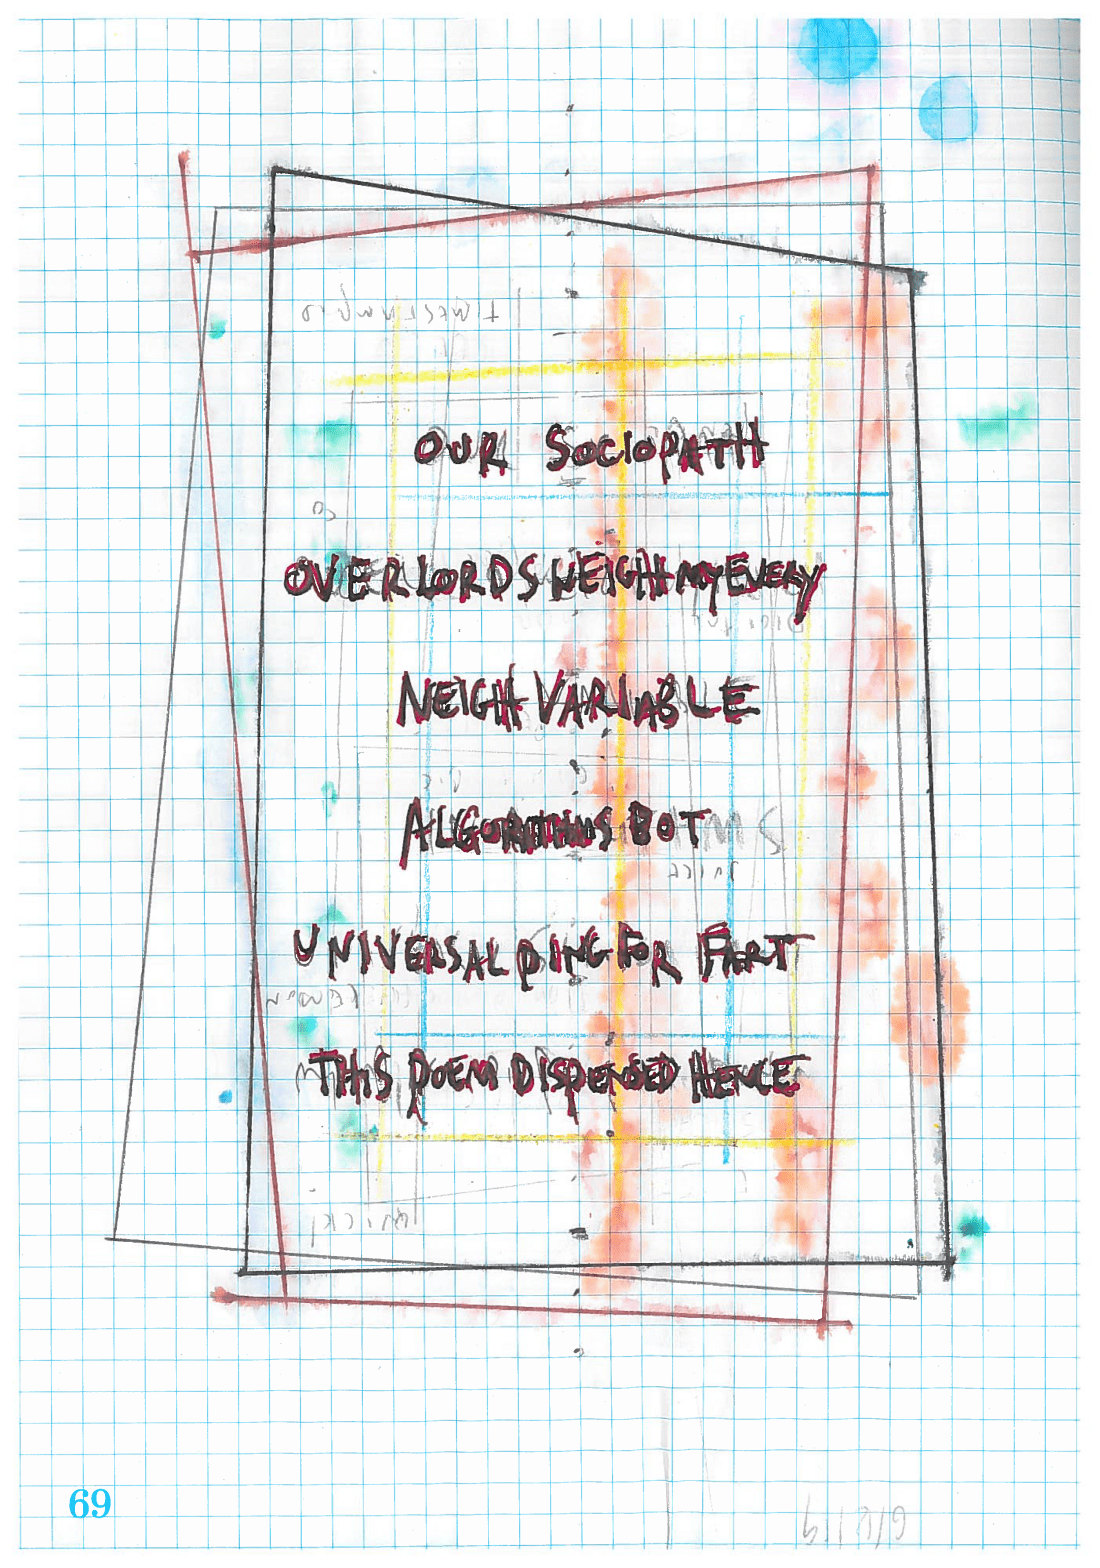 OUR SOCIOPATH
OVERLORDS WEIGH MY EVERY
NEIGH VARIABLE
ALGORITHMS BOT
UNIVERSAL PING FOR FART
THIS POEM DISPENSED HENCE
69